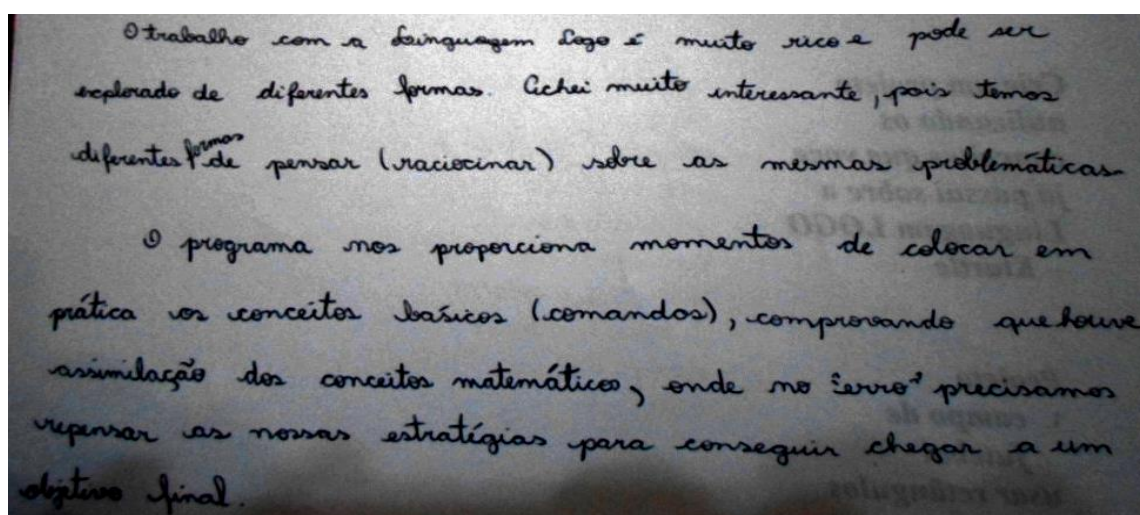 O trabalho com a Linguagem Logo é muito rico e pode ser
explorado de diferentes formas. Achei muito interessante, pois temos
diferentes formas de pensar (raciocinar) sobre as mesmas problemáticas.
O programa nos proporciona momentos de colocar em
prática os conceitos basicos (comandos), comprovando que houve
assimilação dos conceitos matemáticos, onde no "erro" precisamos
repensar as nossas estratégias para conseguir chegar a um
objetivo final.